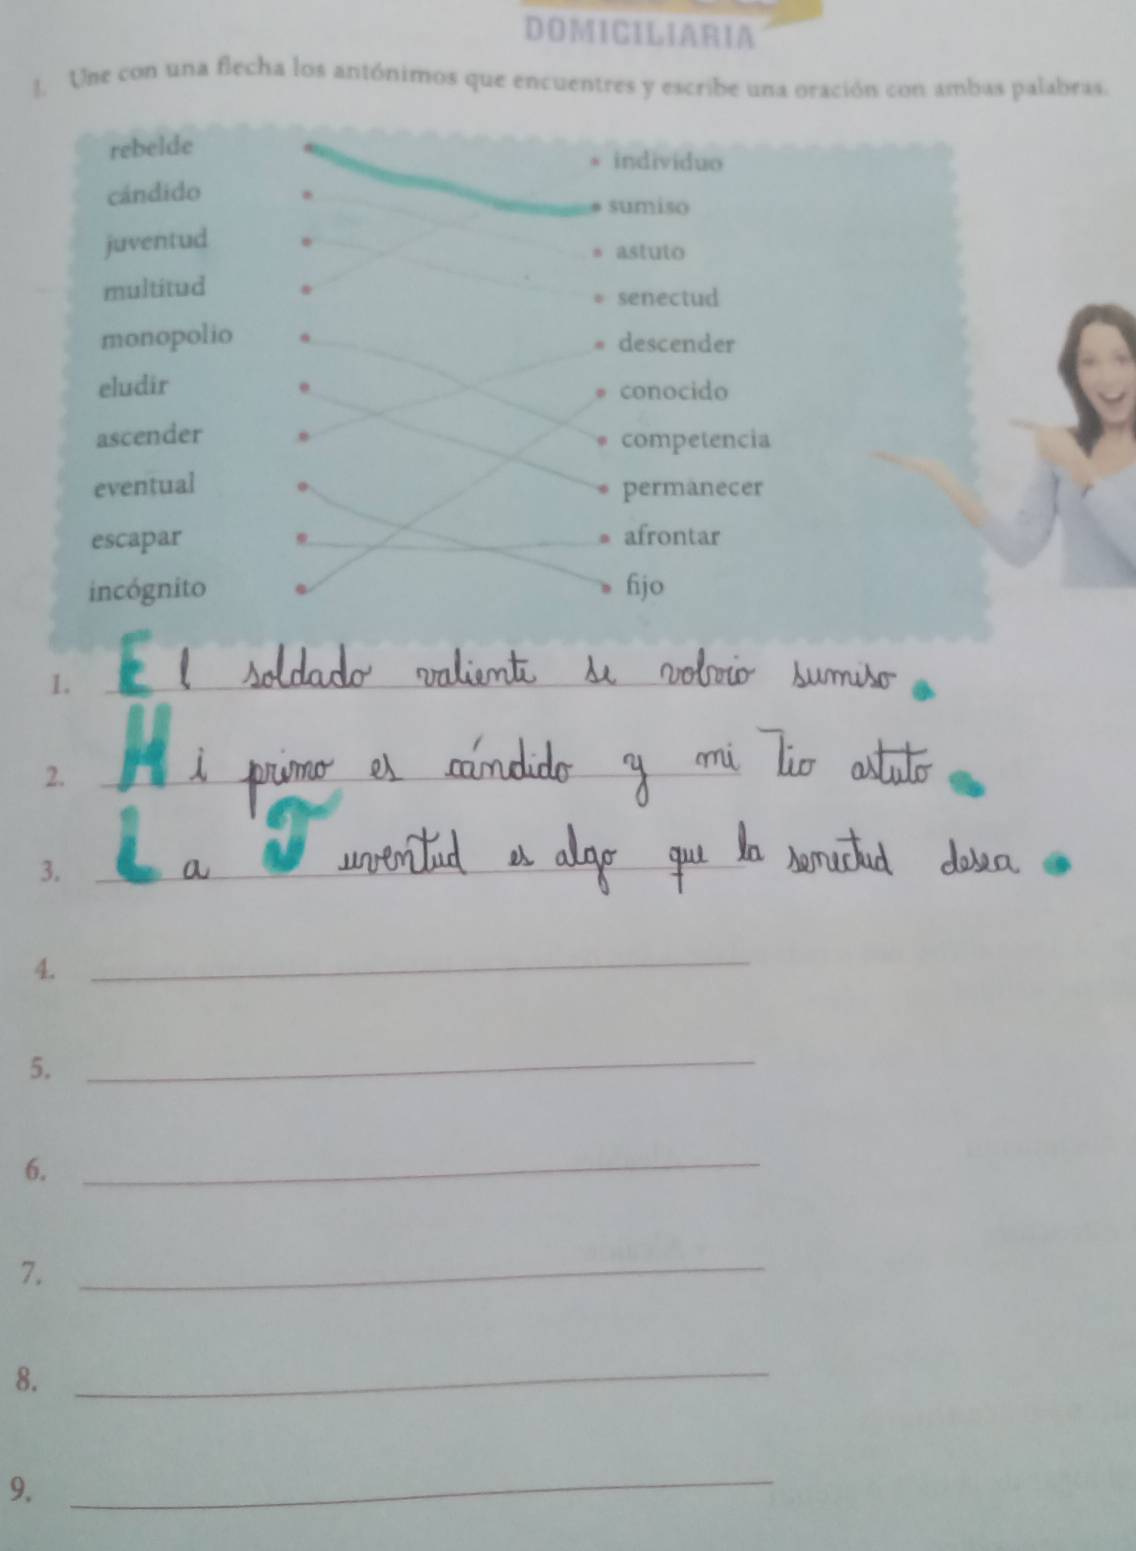 DOMICILIARIA
1. Une con una flecha los antónimos que encuentres y escribe una oración con ambas palabras.
rebelde
individuo
cándido
sumiso
juventud
astuto
multitud
senectud
monopolio
descender
eludir
conocido
ascender
competencia
eventual
permanecer
escapar
afrontar
incógnito
fijo
1. El soldado valiente se volvio sumiso.
2. Mi primo es cándido y mi Tio astuto.
3. La Juventud es algo que la senectud desea.
4.
5.
6.
7.
8.
9.